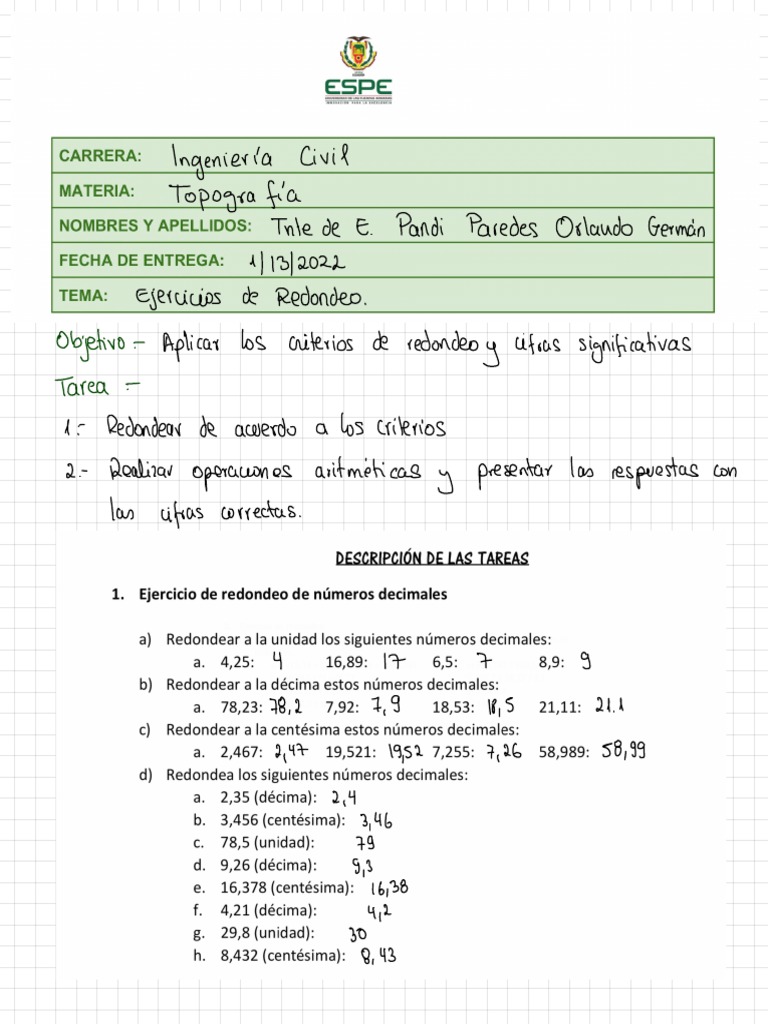 ESPE
UNIVERSIDAD DE LAS FUERZAS ARMADAS
INNOVACIÓN PARA LA EXCELENCIA
CARRERA: Ingeniería Civil
MATERIA: Topografía
NOMBRES Y APELLIDOS: Tnle de E. Pandi Paredes Orlando Germán
FECHA DE ENTREGA: 1/13/2022
TEMA: Ejercicios de Redondeo.
Objetivo.- Aplicar los criterios de redondeo y cifras significativas
Tarea.-
1.- Redondear de acuerdo a los criterios
2.- Realizar operaciones aritméticas y presentar las respuestas con
las cifras correctas.
DESCRIPCIÓN DE LAS TAREAS
1. Ejercicio de redondeo de números decimales
a) Redondear a la unidad los siguientes números decimales:
a. 4,25: 4 16,89: 17 6,5: 7 8,9: 9
b) Redondear a la décima estos números decimales:
a. 78,23: 78,2 7,92: 7,9 18,53: 18,5 21,11: 21.1
c) Redondear a la centésima estos números decimales:
a. 2,467: 2,47 19,521: 19,52 7,255: 7,26 58,989: 58,99
d) Redondea los siguientes números decimales:
a. 2,35 (décima): 2,4
b. 3,456 (centésima): 3,46
c. 78,5 (unidad): 79
d. 9,26 (décima): 9,3
e. 16,378 (centésima): 16,38
f. 4,21 (décima): 4,2
g. 29,8 (unidad): 30
h. 8,432 (centésima): 8,43